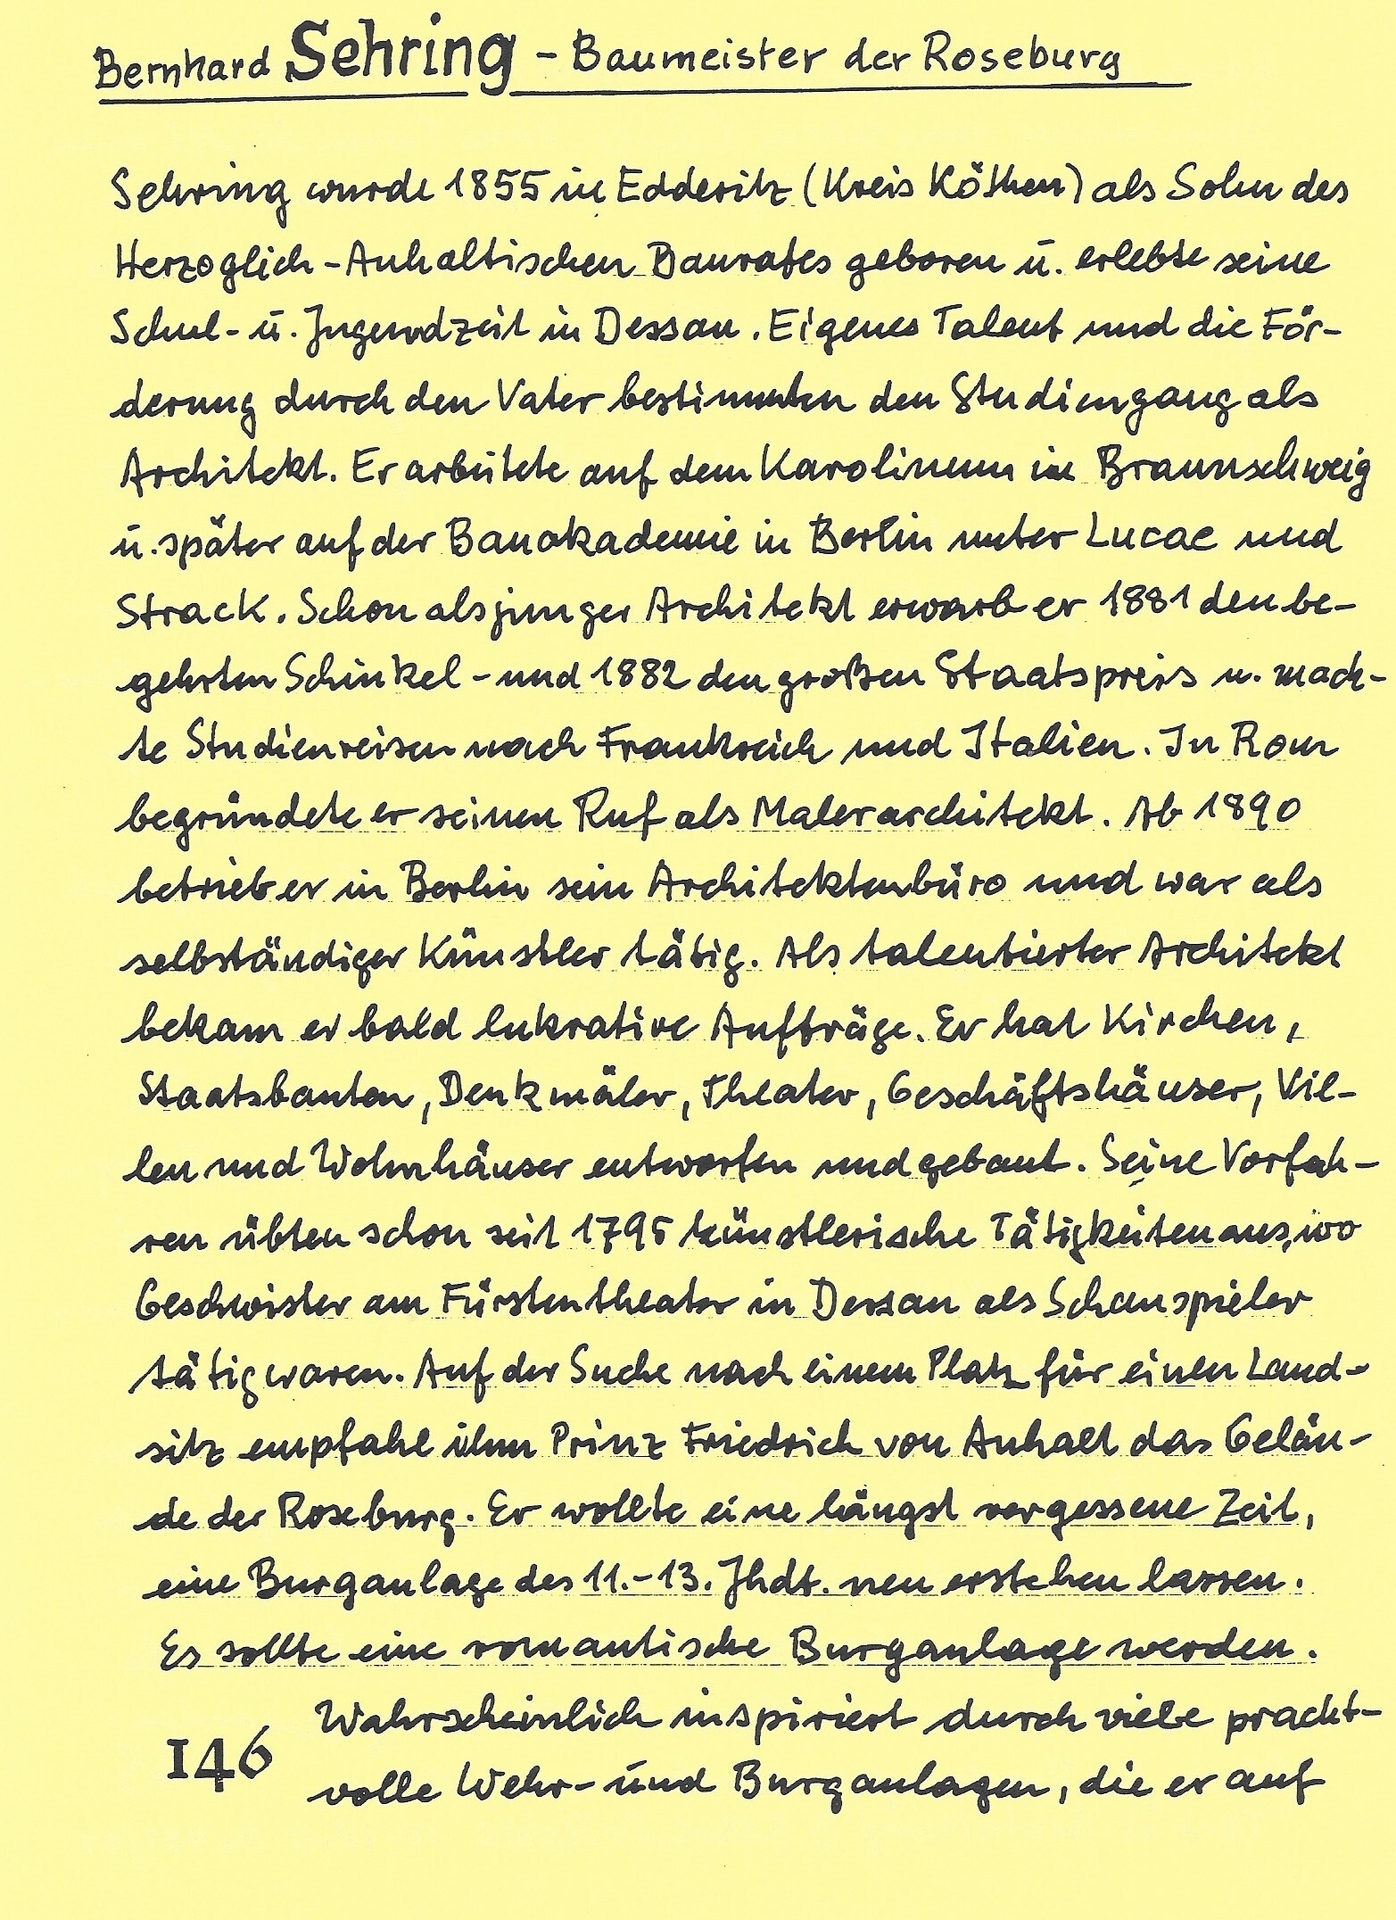 Bernhard Sehring - Baumeister der Roseburg
Sehring wurde 1855 in Edderitz (Kreis Köthen) als Sohn des
Herzoglich-Anhaltischen Baurates geboren u. erlebte seine
Schul- u. Jugendzeit in Dessau. Eigenes Talent und die För-
derung durch den Vater bestimmten den Studiengang als
Architekt. Er arbeitete auf dem Karolinum in Braunschweig
u. später auf der Bauakademie in Berlin unter Lucae und
Strack. Schon als junger Architekt erwarb er 1881 den be-
gehrten Schinkel- und 1882 den großen Staatspreis u. mach-
te Studienreisen nach Frankreich und Italien. In Rom
begründete er seinen Ruf als Malerarchitekt. Ab 1890
betrieb er in Berlin sein Architektenbüro und war als
selbständiger Künstler tätig. Als talentierter Architekt
bekam er bald lukrative Aufträge. Er hat Kirchen,
Staatsbauten, Denkmäler, Theater, Geschäftshäuser, Vil-
len und Wohnhäuser entworfen und gebaut. Seine Vorfah-
ren übten schon seit 1795 künstlerische Tätigkeiten aus, wo
Geschwister am Fürstentheater in Dessau als Schauspieler
tätig waren. Auf der Suche nach einem Platz für einen Land-
sitz empfahl ihm Prinz Friedrich von Anhalt das Gelän-
de der Roseburg. Er wollte eine längst vergessene Zeit,
eine Burganlage des 11.-13. Jhdt. neu erstehen lassen.
Es sollte eine romantische Burganlage werden.
Wahrscheinlich inspiriert durch viele pracht-
volle Wehr- und Burganlagen, die er auf
146